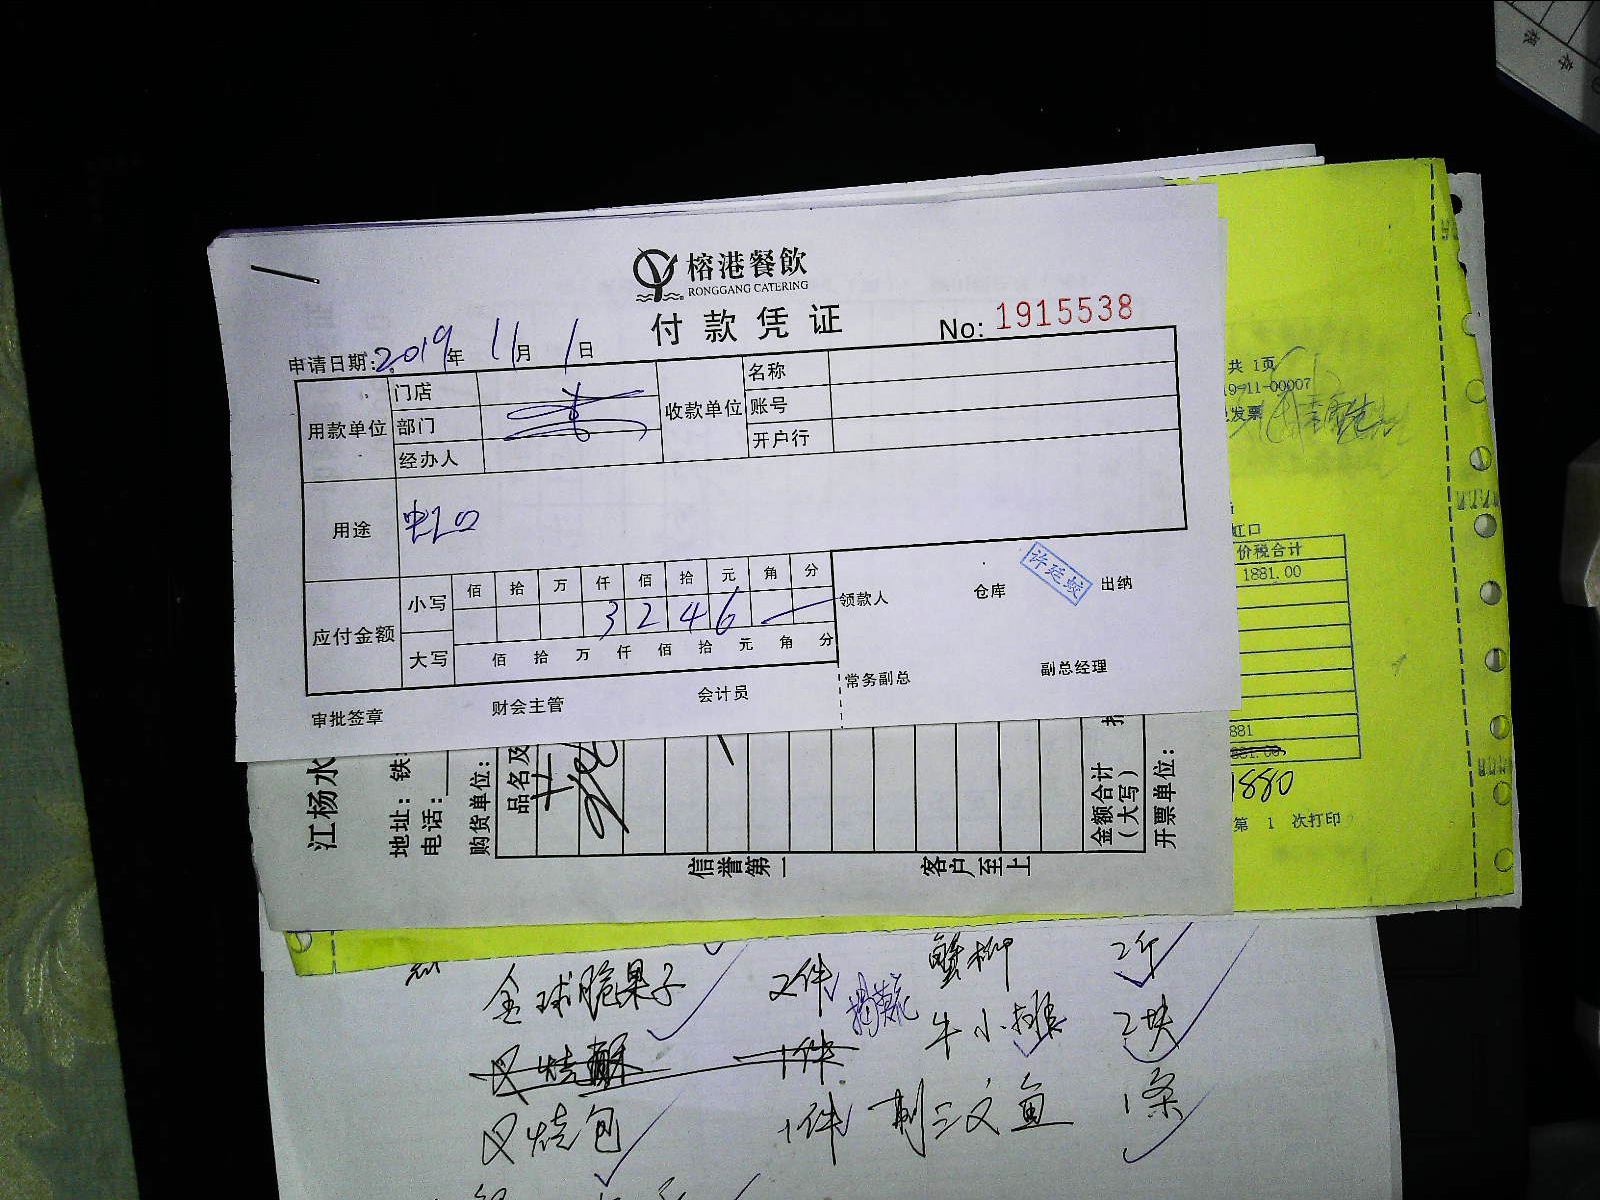 榕港餐飲
RONGGANG CATERING
付款凭证
No: 1915538
申请日期: 2019年 11月 1日
用款单位
门店
部门
经办人
收款单位
名称
账号
开户行
用途
虹口
应付金额
小写
佰 拾 万 仟 佰 拾 元 角 分
3 2 4 6
大写
佰 拾 万 仟 佰 拾 元 角 分
领款人
仓库
许廷蛟
出纳
常务副总
副总经理
审批签章
财会主管
会计员
共 1页
9-11-00007
发票
虹口
价税合计
1881.00
881
1880
第 1 次打印
江杨水
地址: 铁
电话:
购货单位:
品名及
金额合计
(大写)
开票单位:
信誉第一
客户至上
金球脆果子 2件 蟹柳 2斤
叉烧酥 1件 牛小排 2块
叉烧包 1件 刺三文鱼 1条